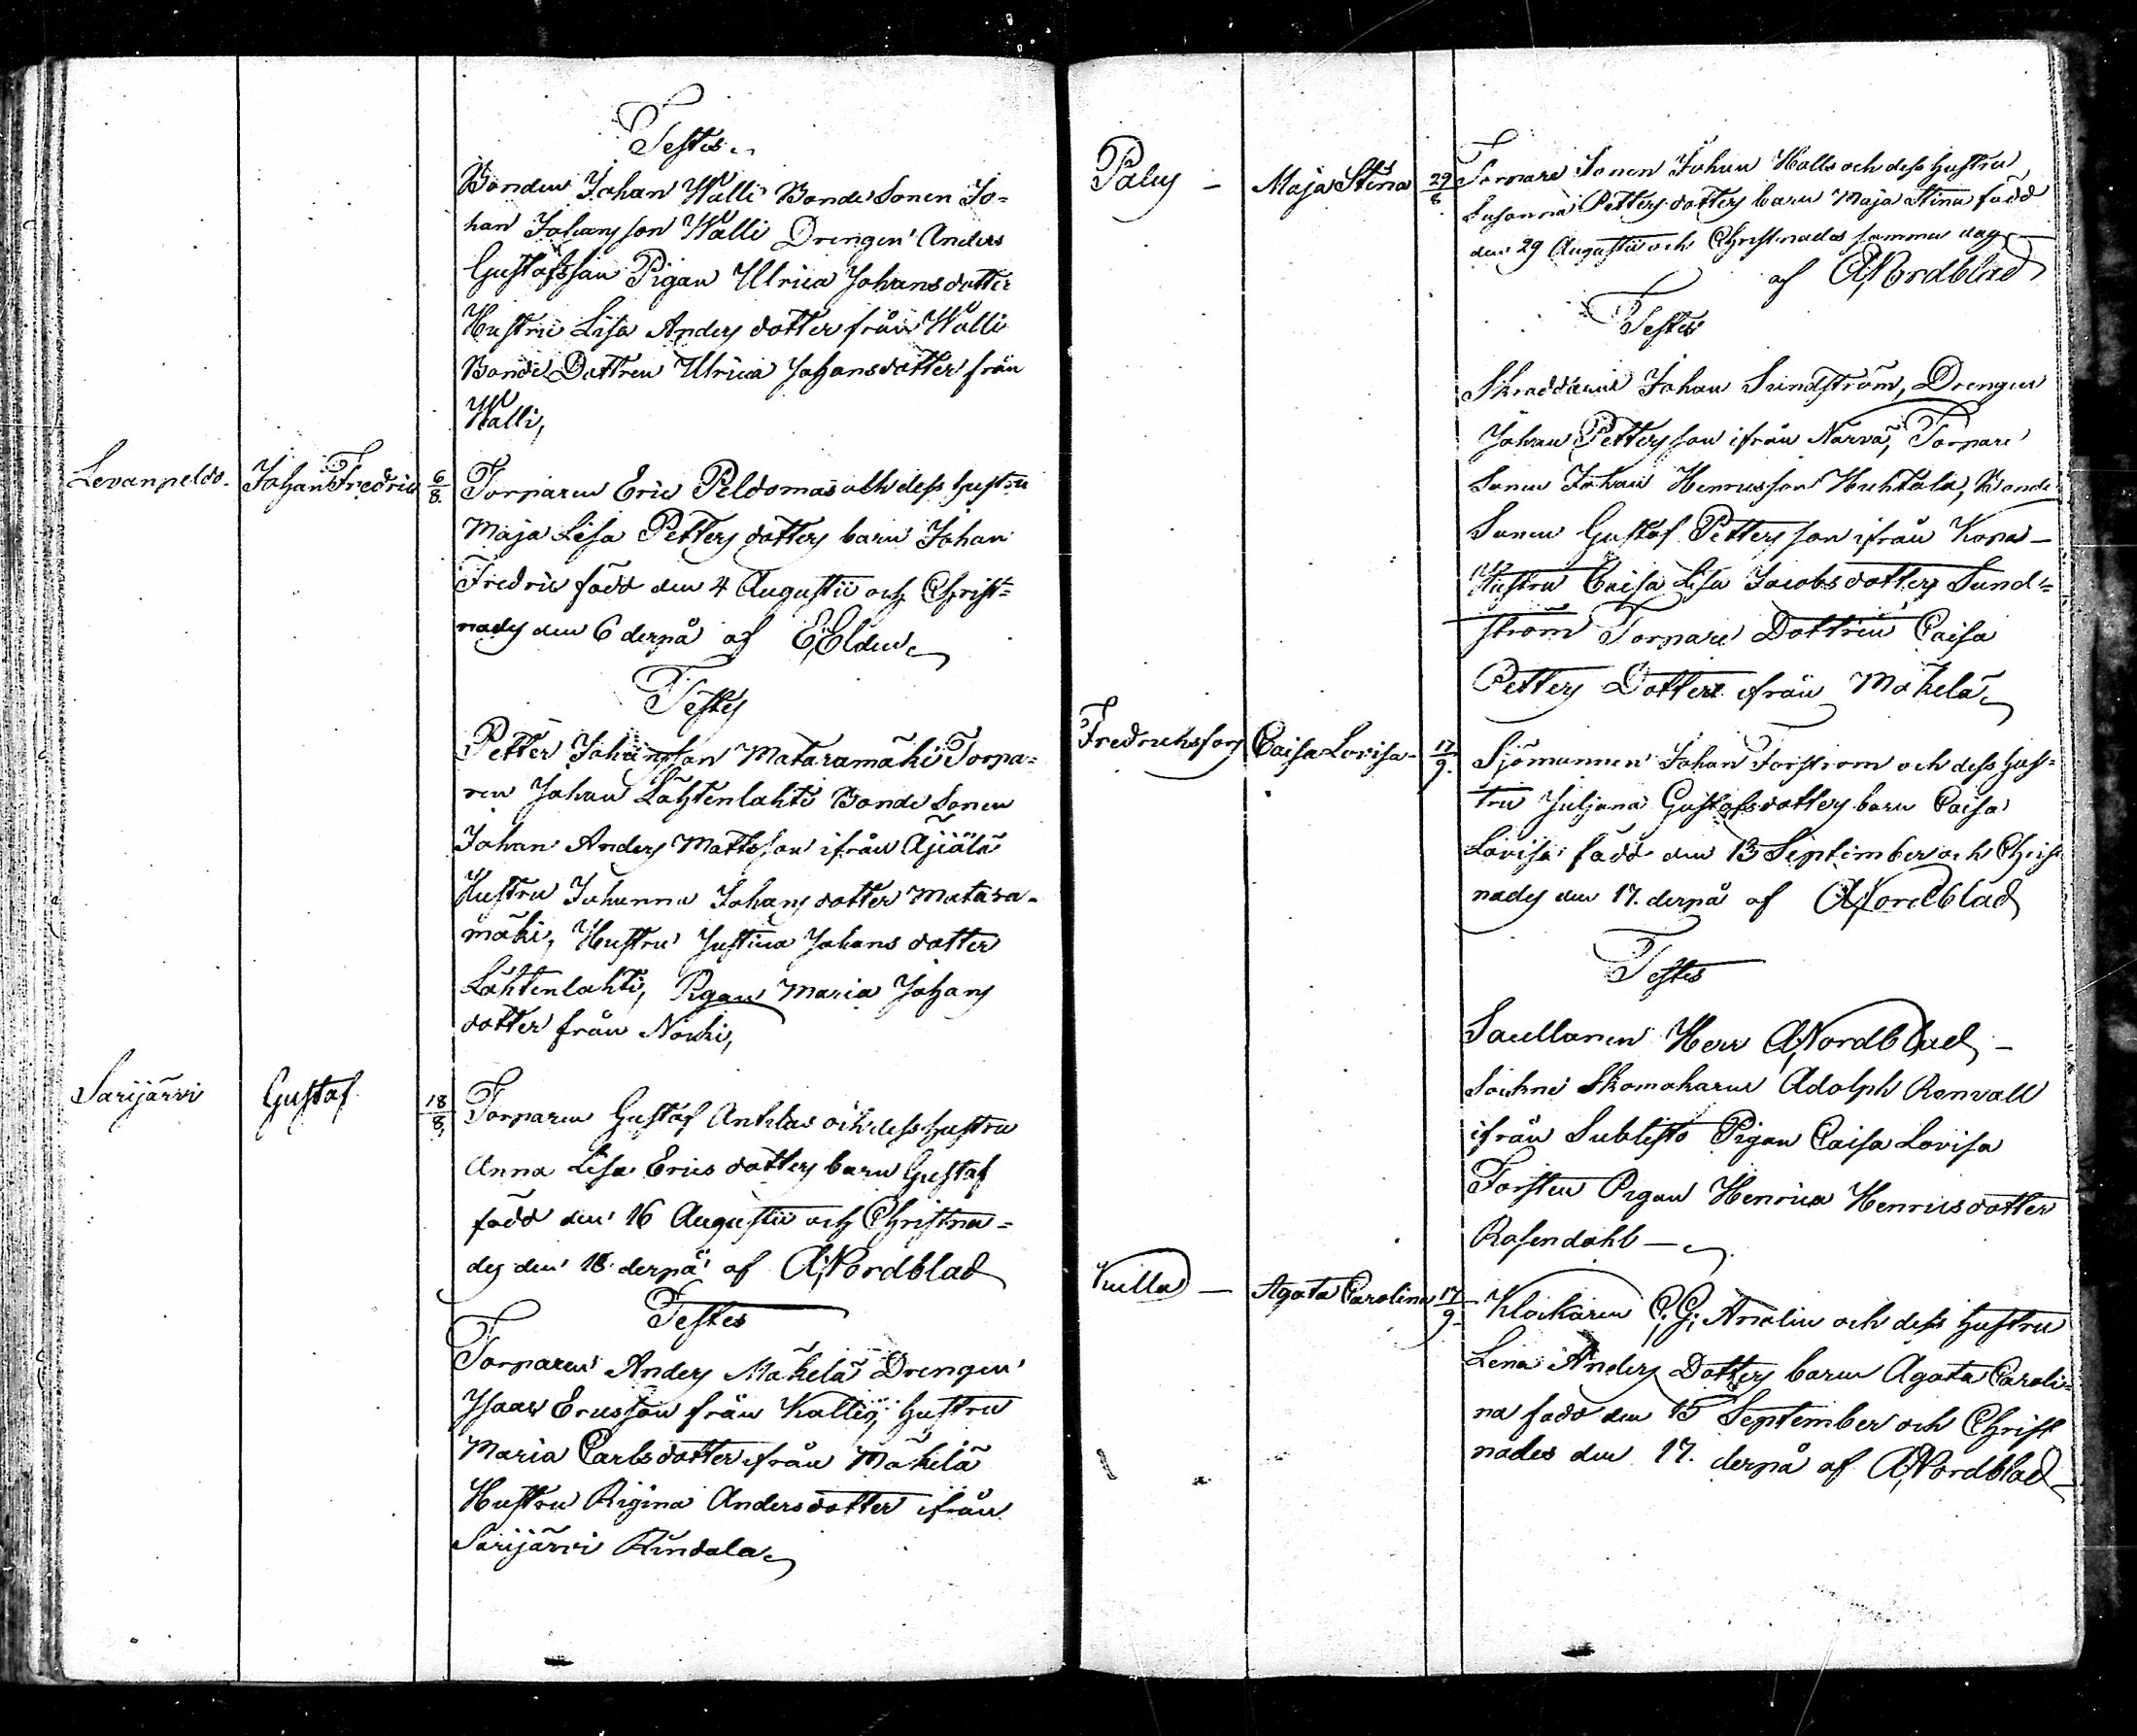 Testes
Bonden Johan Walli Bonde Sonen Jo=
han Johansson Walli Drengen Anders
Gustafsson Pigan Ulrica Johansdotter
Hustru Lisa Anders dotter från Walli
Bonde Dottren Ulrica Johansdotter från
Walli,
Levanpeldo. Johan Fredric 6/8. Torparen Eric Peldomas och dess hustru
Maja Lisa Petters dotters barn Johan
Fredric född den 4 Augustii och Christ=
nades den 6 derpå af E, Elden
Testes
Petter Johansson Mataramäki Torpa=
ren Johan Lähtenlahti Bonde Sonen
Johan Anders Mattsson ifrån Äjiälä
Hustru Johanna Johans dotter Matara-
mäki, Hustru Justina Johans dotter
Lähtenlahti, Pigan Maria Johans
dotter från Nouki,
Sarijärvi Gustaf 18/8, Torparen Gustaf Anklas och dess hustru
Anna Lisa Erics dotters barn Gustaf
född den 16 Augustii och Christna=
des den 18 derpå af A, Nordblad
Testes
Torparen Anders Mäkelä Drengen
Isaac Ericsson från Kallio, hustru
Maria Carlsdotter ifrån Mäkelä
Hustru Rigina Andersdotter ifrån
Sarijärvi Rindala
Palus - Maja Stina 29/8 Torpare Sonen Johan Halls och dess hustru
Susanna Petters dotters barn Maja Stina född
den 29 Augustii och Christnades samma dag
af A, Nordblad
Testes
Skraddaren Johan Sundström, Drengen
Johan Pettersson ifrån Narva, Torpare
Sonen Johan Henricsson Huhtala, Bonde
Sonen Gustaf Pettersson ifrån Kopa-
Hustru Caisa Lisa Jacobsdotter Sund=
ström Torpare Dottren Caisa
Petters Dotter ifrån Mäkelä
Fredrichsfors Caisa Lovisa - 17/9. Sjömannen Johan Forström och dess hus=
tru Juljana Gustafsdotters barn Caisa
Lovisa född den 13 September och Christ
nades den 17. derpå af A, Nordblad
Testes
Sacellanen Herr A, Nordblad, -
Sockne Skomakaren Adolph Renvall
ifrån Sublisto Pigan Caisa Lovisa
Forsten Pigan Henrica Henricsdotter
Rosendahl -
Kuilla - Agata Carolina 17/9. Klockaren C, G, Amolin och dess hustru
Lena Anders Dotters barn Agata Caroli=
na född den 15 September och Christ
nades den 17. derpå af A, Nordblad